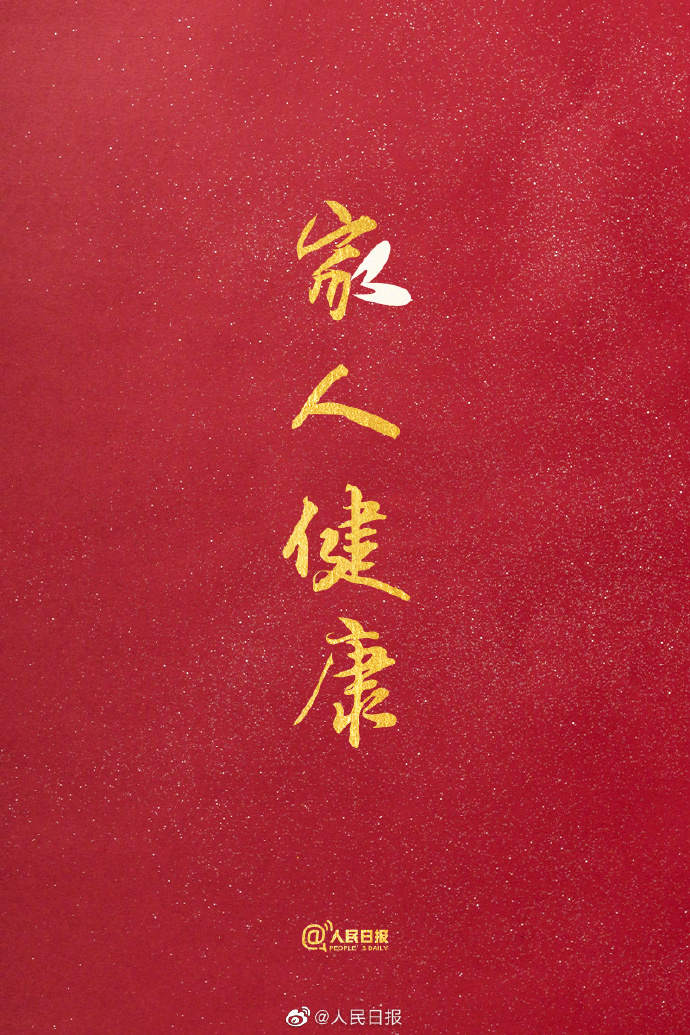 家人健康
@人民日报
PEOPLE'S DAILY
@人民日报